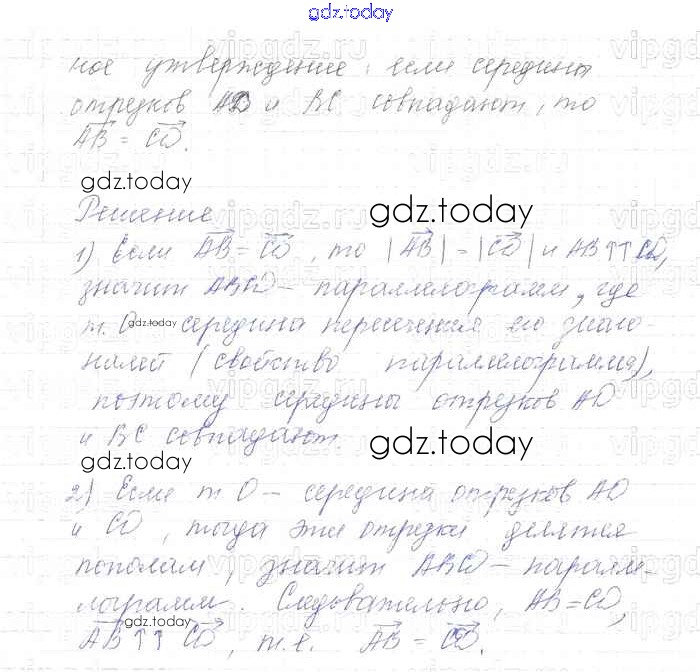 gdz.today
ное утверждение: если середины
отрезков AD и BC совпадают, то
AB = CD.
gdz.today
Решение
gdz.today
1) Если AB = CD, то |AB| = |CD| и AB↑↑CD,
значит ABCD – параллелограмм, где
т. O gdz.today середина пересечения его диаго-
налей (свойство параллелограмма),
поэтому середины отрезков AD
и BC совпадают.
gdz.today
gdz.today
2) Если т O – середина отрезков AD
и CD, тогда эти отрезки делятся
пополам, значит ABCD – паралле-
лограмм. Следовательно, AB = CD,
AB ↑↑ CD, т.е. AB = CD.